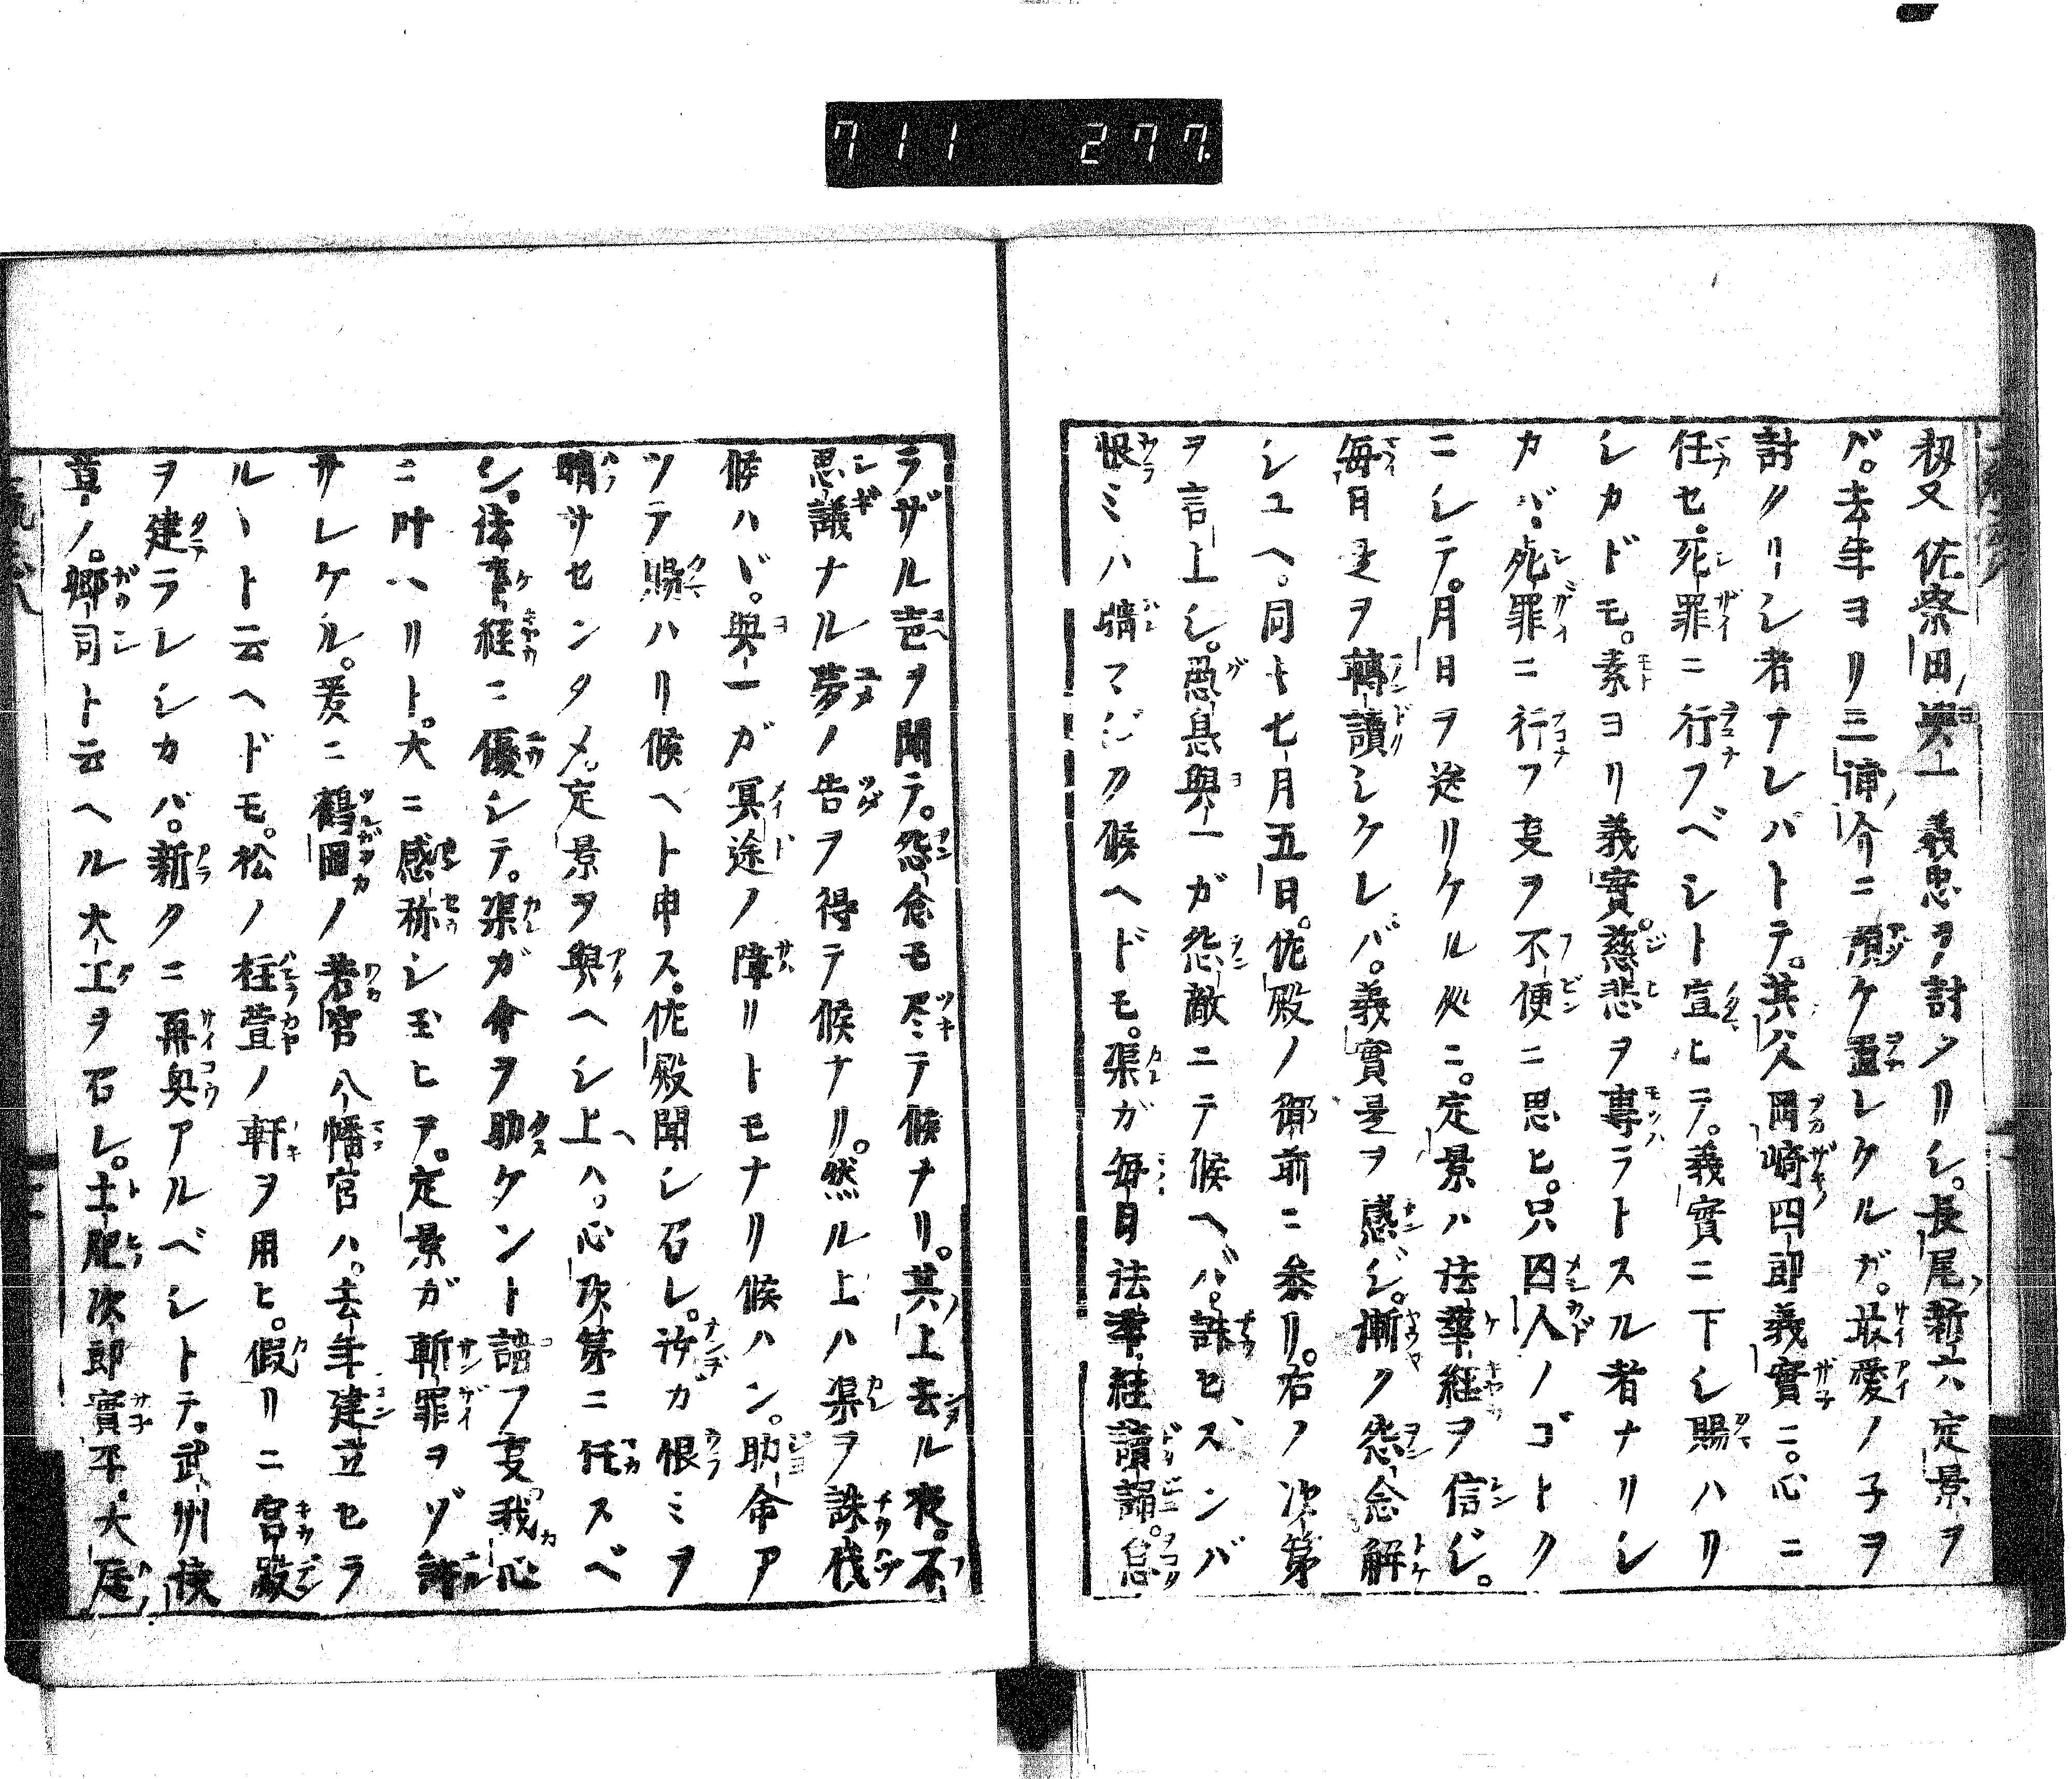 711 277.
扨又佐奈田與一義忠ヲ討タリシ。長尾新六定景ヲ
バ。去年ヨリ三浦介ニ預ケ置レケルガ。最愛ノ子ヲ
討タリシ者ナレバトテ。其父岡崎四郎義實ニ。心ニ
任セ。死罪ニ行フベシト宣ヒテ。義實ニ下シ賜ハリ
シカドモ。素ヨリ義實。慈悲ヲ專ラトスル者ナリシ
カバ。死罪ニ行フ叓ヲ不便ニ思ヒ。只囚人ノゴトク
ニシテ。月日ヲ送リケル処ニ。定景ハ法華経ヲ信ジ。
毎日是ヲ轉讀シケレバ。義實是ヲ感ジ。漸ク怨念解
シユヘ。同キ七月五日。佐殿ノ御前ニ参リ。右ノ次第
ヲ言上シ。愚息與一ガ怨敵ニテ候ヘバ。誅セズンバ
恨ミハ晴マジク候ヘドモ。渠ガ毎日法華経讀誦。怠
ラザル声ヲ聞テ。怨念モ尽テ候ナリ。其上去ル夜。不
思議ナル夢ノ告ヲ得テ候ナリ。然ル上ハ渠ヲ誅伐
候ハヾ。與一ガ冥途ノ障リトモナリ候ハン。助命ア
ツテ賜ハリ候ヘト申ス。佐殿聞シ召レ。汝ガ恨ミヲ
晴サセンタメ。定景ヲ與ヘシ上ハ。心次第ニ任スベ
シ。法華経ニ優シテ。渠ガ命ヲ助ケント請フ叓我心
ニ叶ヘリト。大ニ感称シ玉ヒヲ。定景ガ斬罪ヲゾ許
サレケル。爰ニ鶴岡ノ若宮八幡宮ハ。去年建立セラ
ルヽト云ヘドモ。松ノ柱萱ノ軒ヲ用ヒ。假リニ宮殿
ヲ建ラレシカバ。新タニ再奥アルベシトテ。武州浅
草ノ。郷司ト云ヘル大工ヲ召レ。土肥次郎實平。大庭